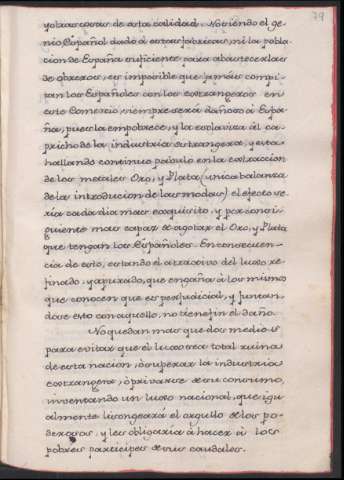 79
y otras cosas de esta calidad. No siendo el ge-
nio Español dado á estas fabricas, ni la pobla-
cion de España suficiente para abastecerlas
de obreros, es imposible que jamás compi-
tan los Españoles con los extrangeros en
este Comercio, siempre será dañoso á Espa-
ña, pues la empobrece, y la esclaviza al ca-
pricho de la industria extrangera, y esta
hallando continuo pabulo en la extraccion
de los metales Oro, y Plata (unica balanza
de la introducion de las modas) el efecto se-
ria cada dia mas exquisito, y por consi-
guiente mas capaz de agotar el Oro, y Plata
que tengan los Españoles. En consecuen-
cia de esto, estando el atractivo del luxo re-
finado, y apurado, que engaña á los mismos
que conocen que es perjudicial, y juntan-
dose esto con aquello, no tiene fin el daño.
No quedan mas que dos medios
para evitar que el luxo sea total ruina
de esta nacion, ò superar la industria
extrangera, ò privarse de su consumo,
inventando un luxo nacional, que igu-
almente lisongeará el orgullo de los po-
derosos, y les obligaria à hacer à los
pobres participes de sus caudales.